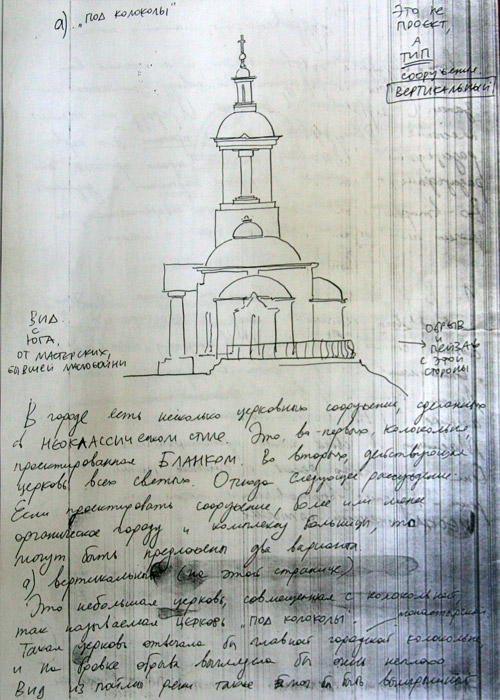 а) „под колоколы"
Это не
проект,
а
ТИП
сооружения
ВЕРТИКАЛЬНЫЙ
ВИД
с
ЮГА,
от мастерских,
бывшей маслобойни
→ ОБРЫВ
и
ПЕЙЗАЖ
с этой
стороны
В городе есть несколько церковных сооружений, сделанных
в НЕОКЛАССИЧЕСКОМ стиле. Это, во-первых, колокольня,
проектированная БЛАНКОМ. Во вторых, действующая
церковь всех святых. Отсюда следующее рассуждение:
Если проектировать сооружение, более или менее
органическое городу и комплексу больницы, то
могут быть предложены два варианта
а) вертикальный (на этой странице)
Это небольшая церковь, совмещенная с колокольней,
так называемая церковь „под колоколы".
Такая церковь отвечала бы главной городской колокольне
и на бровке обрыва выглядела бы очень неплохо
Вид из поймы реки также мог бы быть